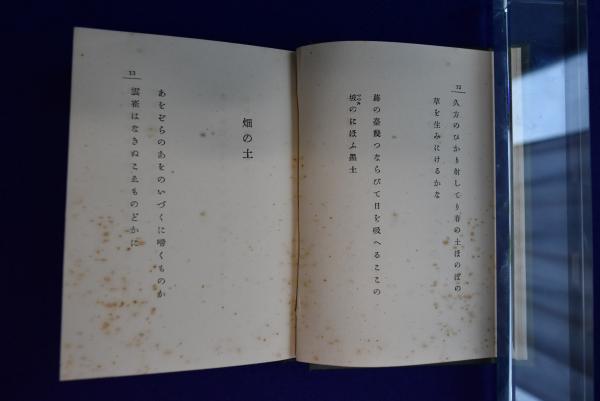 12
久方のひかり射してり春の土ほのぼの
草を生みにけるかな
蕗の薹幾つならびて日を吸へるここの
坡のにほふ黒土
畑の土
あをぞらのあをのいづくに啼くものか
雲雀はなきぬこゑものどかに
13